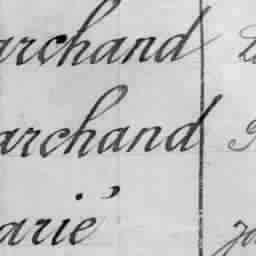 archand
archand
arié